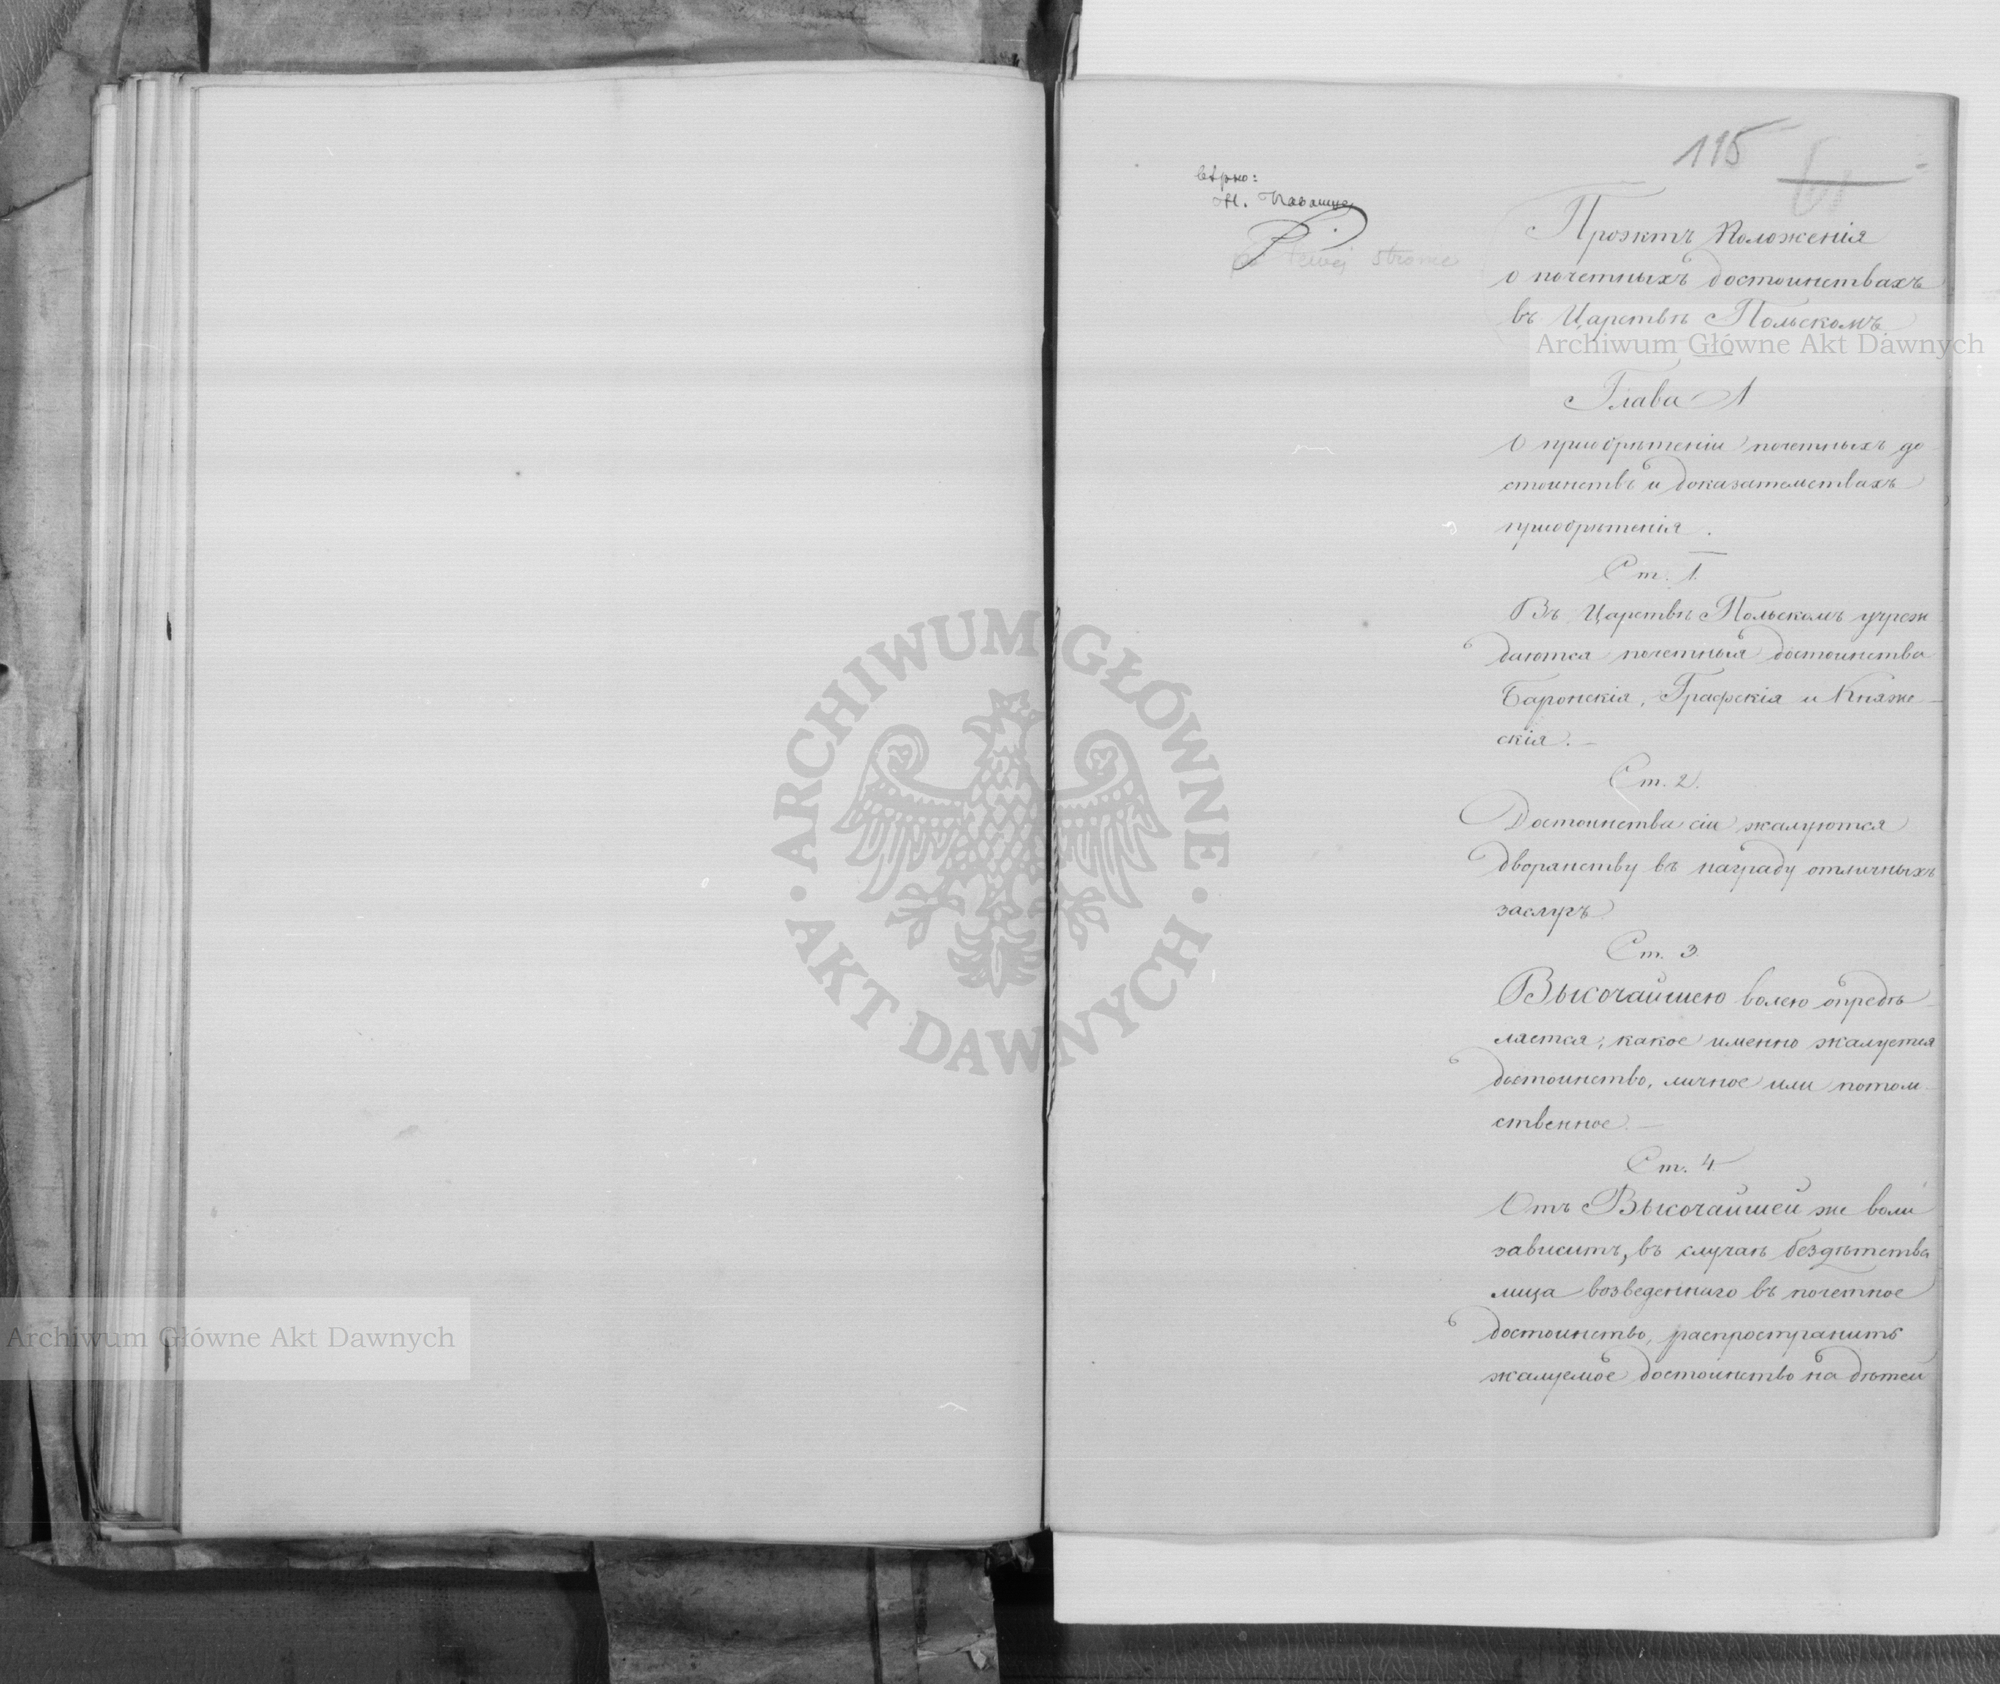 115
вѣрно:
Проэктъ Положенія
о почетныхъ достоинствахъ
въ Царствѣ Польскомъ
Archiwum Główne Akt Dawnych
Глава 1
О приобрѣтеніи почетныхъ до
стоинствъ и доказательствахъ
приобрѣтенія.
Ст. 1.
Въ Царствѣ Польскомъ учреж
даются почетныя достоинства
Баронскія, Графскія и Княже-
скія. —
Ст. 2.
Достоинства сіи жалуются
дворянству въ награду отличныхъ
заслугъ
Ст. 3.
Высочайшею волею опредѣ-
ляется, какое именно жалуется
достоинство, личное или потом-
ственное. —
Ст. 4
Отъ Высочайшей же воли
зависитъ, въ случаѣ бездѣтства
лица возведеннаго въ почетное
достоинство, распространить
жалуемое достоинство на дѣтей
ARCHIWUM GŁÓWNE · AKT DAWNYCH ·
Archiwum Główne Akt Dawnych